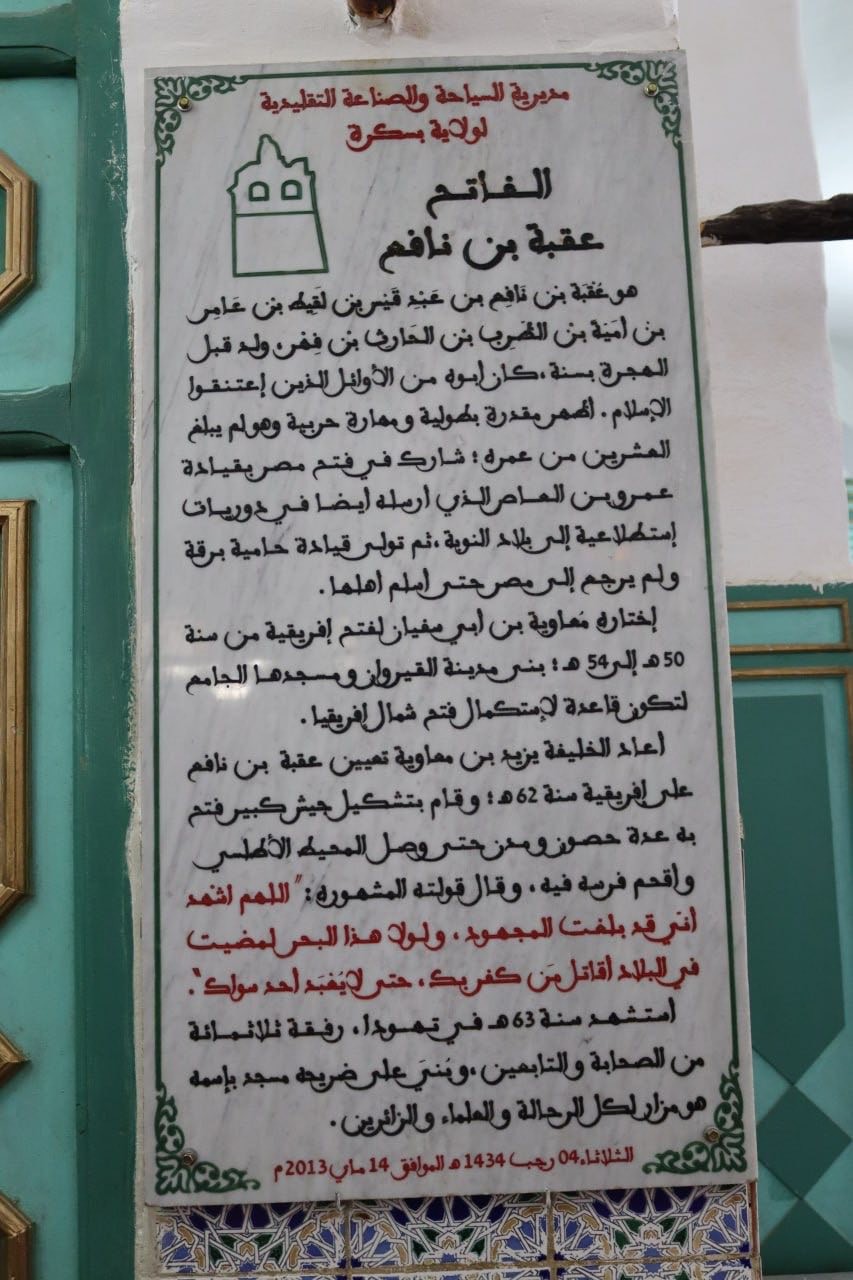 مديرية السياحة والصناعة التقليدية
لولاية بسكرة
الفاتح
عقبة بن نافع
هو عُقْبَة بن نَافِع بن عَبْدِ قَيْس بن لَقِيط بن عَامِر
بن أمَيَة بن الظَرِب بن الحَارِث بن فِهْر، ولد قبل
الهجرة بسنة ،كان أبوه من الأوائل الذين إعتنقوا
الإسلام . أظهر مقدرة بطولية ومهارة حربية وهو لم يبلغ
العشرين من عمره ؛ شارك في فتح مصر بقيادة
عمرو بن العاص الذي أرسله أيضا في دوريات
إستطلاعية إلى بلاد النوبة ،ثم تولى قيادة حامية برقة
ولم يرجع إلى مصر حتى أسلم أهلها .
إختاره مُعاوية بن أبي سفيان لفتح إفريقية من سنة
50 هـ إلى 54 هـ ؛ بنى مدينة القيروان ومسجدها الجامع
لتكون قاعدة لإستكمال فتح شمال إفريقيا .
أعاد الخليفة يزيد بن معاوية تعيين عقبة بن نافع
على إفريقية سنة 62 هـ ؛ وقام بتشكيل جيش كبير فتح
به عدة حصون ومدن حتى وصل المحيط الأطلسي
وأقحم فرسه فيه ، وقال قولته المشهورة : " اللهم اشهد
أني قد بلغت المجهود ، ولولا هذا البحر لمضيت
في البلاد أقاتل مَن كفر بك ، حتى لا يُعْبَد أحد سواك " .
أستشهد سنة 63 هـ في تهودا ، رفقة ثلاثمائة
من الصحابة والتابعين ،وبُنيَ على ضريحه مسجد بإسمه
هو مزار لكل الرحالة والعلماء والزائرين .
الثلاثاء 04 رجب 1434 هـ الموافق 14 ماي 2013 م